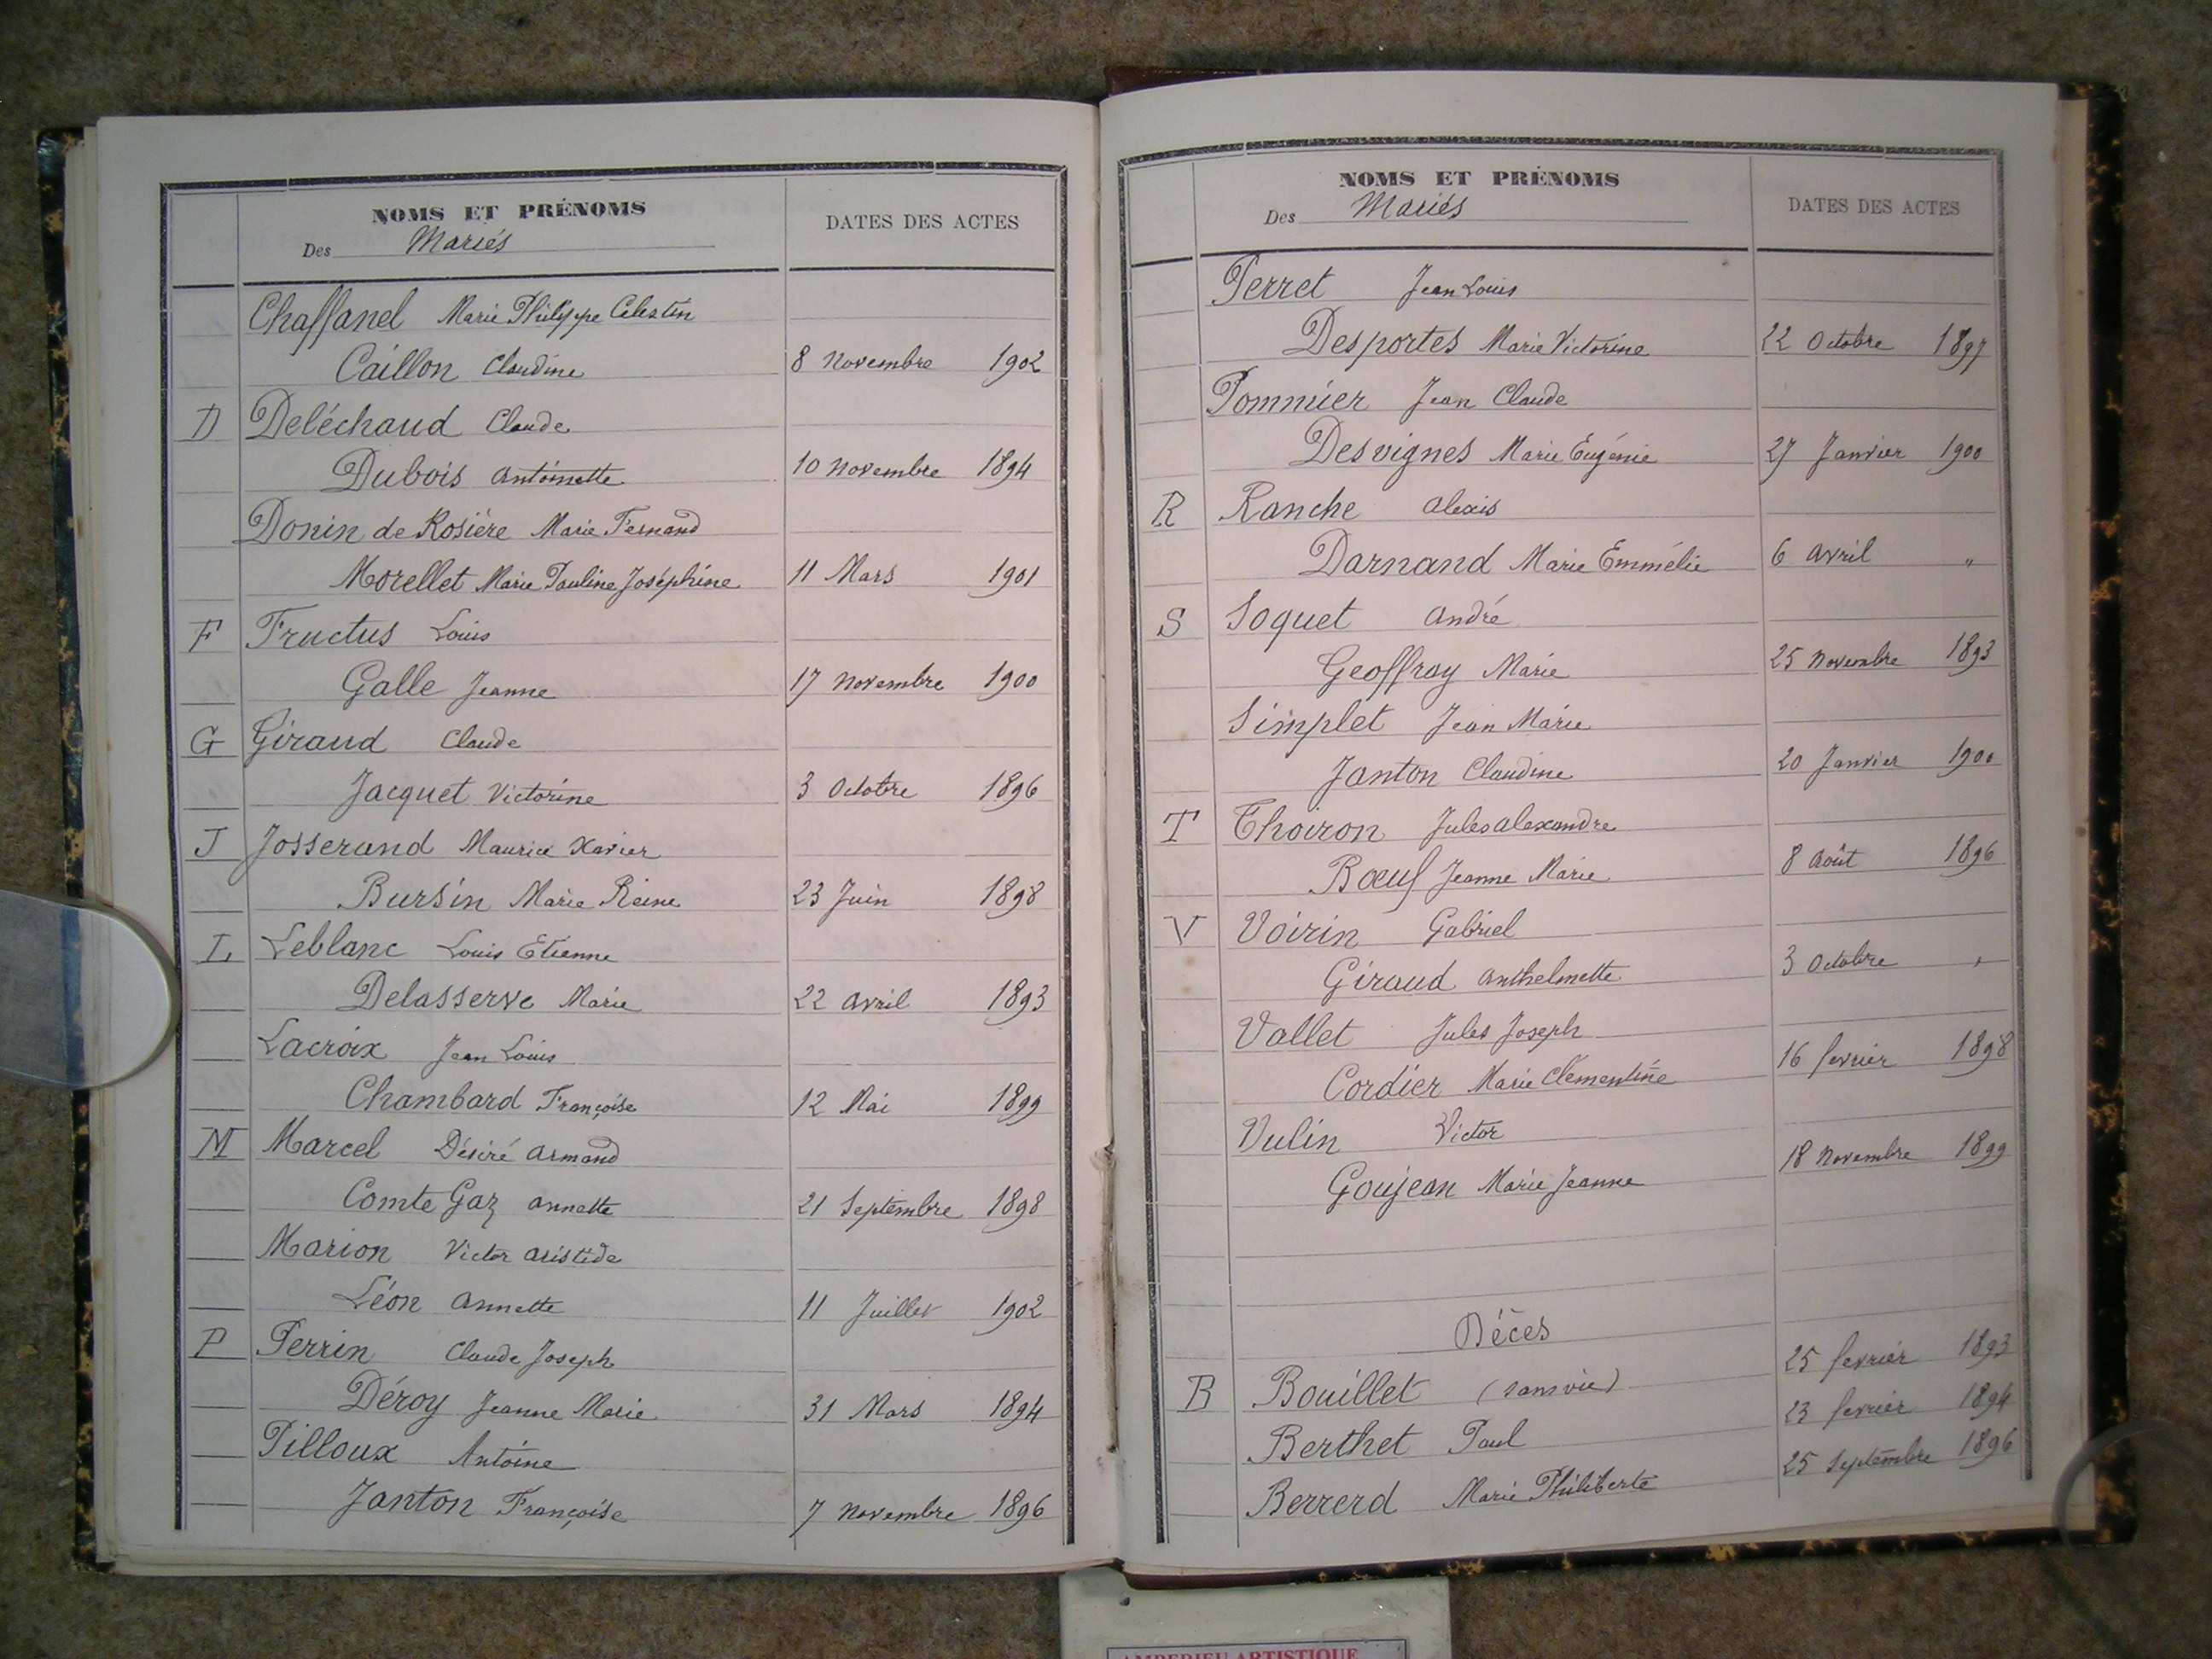 NOMS ET PRÉNOMS
Des Mariés
DATES DES ACTES
Chaffanel Marie Philippe Célestin
Caillon Claudine 8 Novembre 1902
D Deléchaud Claude
Dubois Antoinette 10 Novembre 1894
Donin de Rosière Marie Fernand
Morellet Marie Pauline Joséphine 11 Mars 1901
F Fructus Louis
Galle Jeanne 17 Novembre 1900
G Giraud Claude
Jacquet Victorine 3 Octobre 1896
J Josserand Maurice Xavier
Bursin Marie Reine 23 Juin 1898
L Leblanc Louis Etienne
Delasserve Marie 22 Avril 1893
Lacroix Jean Louis
Chambard Françoise 12 Mai 1899
M Marcel Désiré Armand
Comte Gaz Annette 21 Septembre 1898
Marion Victor Aristide
Léon Annette 11 Juillet 1902
P Perrin Claude Joseph
Déroy Jeanne Marie 31 Mars 1894
Pilloux Antoine
Janton Françoise 7 Novembre 1896
NOMS ET PRÉNOMS
Des Mariés
DATES DES ACTES
Perret Jean Louis
Desportes Marie Victorine 22 Octobre 1897
Pommier Jean Claude
Desvignes Marie Eugénie 27 Janvier 1900
R Ranche Alexis
Darnand Marie Emmélie 6 Avril "
S Soquet André
Geoffray Marie 25 Novembre 1893
Simplet Jean Marie
Janton Claudine 20 Janvier 1900
T Thoiron Jules Alexandre
Bœuf Jeanne Marie 8 Août 1896
V Voirin Gabriel
Giraud Anthelmette 3 Octobre "
Vallet Jules Joseph
Cordier Marie Clémentine 16 fevrier 1898
Vulin Victor
Goujean Marie Jeanne 18 Novembre 1899
Décès
B Bouillet (sans vie) 25 fevrier 1893
Berthet Paul 23 fevrier 1894
Berrerd Marie Philiberte 25 Septembre 1896
AMBERIEU ARTISTIQUE